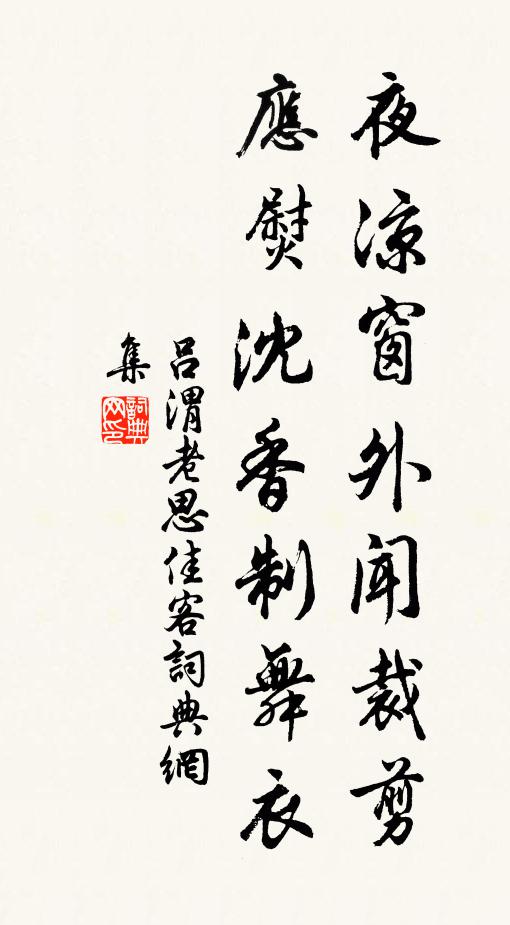 夜涼窗外聞裁剪
應熨沈香制舞衣
吕渭老思佳客詞典網
集
詞典
网印